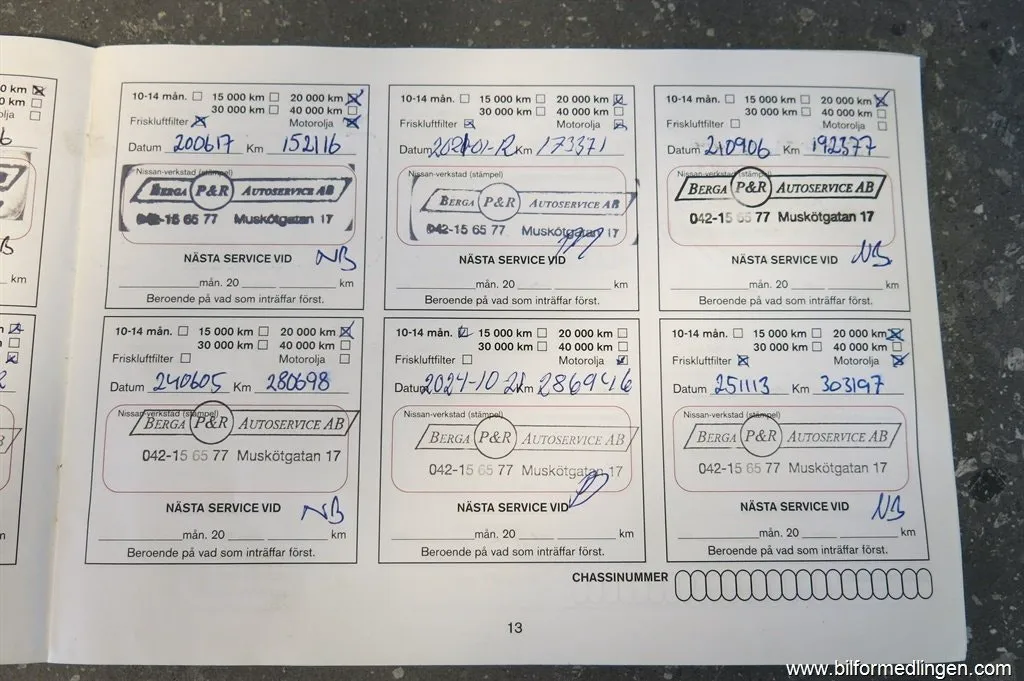 10-14 mån. 15 000 km 20 000 km
30 000 km 40 000 km
Friskluftfilter Motorolja
Datum 200617 Km 152116
Nissan-verkstad (stämpel)
BERGA P&R AUTOSERVICE AB
042-15 65 77 Muskötgatan 17
NÄSTA SERVICE VID NB
mån. 20 km
Beroende på vad som inträffar först.
10-14 mån. 15 000 km 20 000 km
30 000 km 40 000 km
Friskluftfilter Motorolja
Datum 2021-01-12 Km 173371
Nissan-verkstad (stämpel)
BERGA P&R AUTOSERVICE AB
042-15 65 77 Muskötgatan 17
NÄSTA SERVICE VID
mån. 20 km
Beroende på vad som inträffar först.
10-14 mån. 15 000 km 20 000 km
30 000 km 40 000 km
Friskluftfilter Motorolja
Datum 210906 Km 192377
Nissan-verkstad (stämpel)
BERGA P&R AUTOSERVICE AB
042-15 65 77 Muskötgatan 17
NÄSTA SERVICE VID NB
mån. 20 km
Beroende på vad som inträffar först.
10-14 mån. 15 000 km 20 000 km
30 000 km 40 000 km
Friskluftfilter Motorolja
Datum 240605 Km 280698
Nissan-verkstad (stämpel)
BERGA P&R AUTOSERVICE AB
042-15 65 77 Muskötgatan 17
NÄSTA SERVICE VID NB
mån. 20 km
Beroende på vad som inträffar först.
10-14 mån. 15 000 km 20 000 km
30 000 km 40 000 km
Friskluftfilter Motorolja
Datum 2024-10 21 Km 286946
Nissan-verkstad (stämpel)
BERGA P&R AUTOSERVICE AB
042-15 65 77 Muskötgatan 17
NÄSTA SERVICE VID
mån. 20 km
Beroende på vad som inträffar först.
10-14 mån. 15 000 km 20 000 km
30 000 km 40 000 km
Friskluftfilter Motorolja
Datum 251113 Km 303197
Nissan-verkstad (stämpel)
BERGA P&R AUTOSERVICE AB
042-15 65 77 Muskötgatan 17
NÄSTA SERVICE VID NB
mån. 20 km
Beroende på vad som inträffar först.
CHASSINUMMER
13
www.bilformedlingen.com